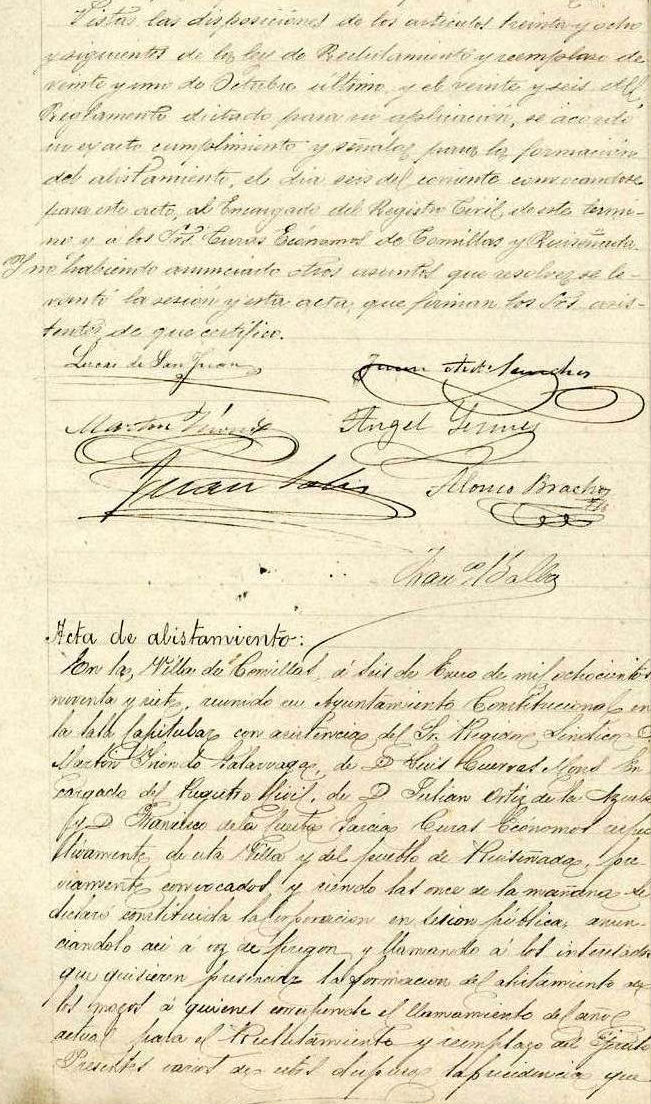 Vistas las disposiciones de los artículos treinta y ocho
y siguientes de la ley de Reclutamiento y reemplazo de
veinte y uno de Octubre último, y el veinte y seis del
Reglamento dictado para su aplicación, se acordó
su exacto cumplimiento y señalar para la formación
del alistamiento, el día seis del corriente convocandose
para este acto, al Encargado del Registro Civil de este térmi-
no y á los Srs. Curas Ecónomos de Comillas y Ruiseñada.
Y no habiendo anunciado otros asuntos que resolver se le-
vantó la sesión y esta acta, que firman los Srs. asis-
tentes de que certifico.
Lucas de San Juan
Juan Ant. Sanchez
Martin
Angel
Juan Solis
Alonso Bracho
Franco. Balbá
Acta de alistamiento:
En la Villa de Comillas, á seis de Enero de mil ochocientos
noventa y siete, reunido su Ayuntamiento Constitucional en
la sala Capitular con asistencia del Sr. Regidor Sindico D.
Martin de D. Luis Cuevas En
cargado del Registro Civil, de D. Julian Ortiz de la
y D. Francisco de la García Curas Ecónomos respec
tivamente de esta Villa y del pueblo de Ruiseñada, pre
viamente convocados, y siendo las once de la mañana se
declaró constituida la Corporacion en sesion pública, anun-
ciandolo asi á voz de pregon, y llamando á los interesados
que quisieren presenciar la formacion del alistamiento de
los mozos á quienes corresponde el llamamiento del año
actual para el Reclutamiento y reemplazo del Ejército
Presentes varios de estos dispuso la presidencia que